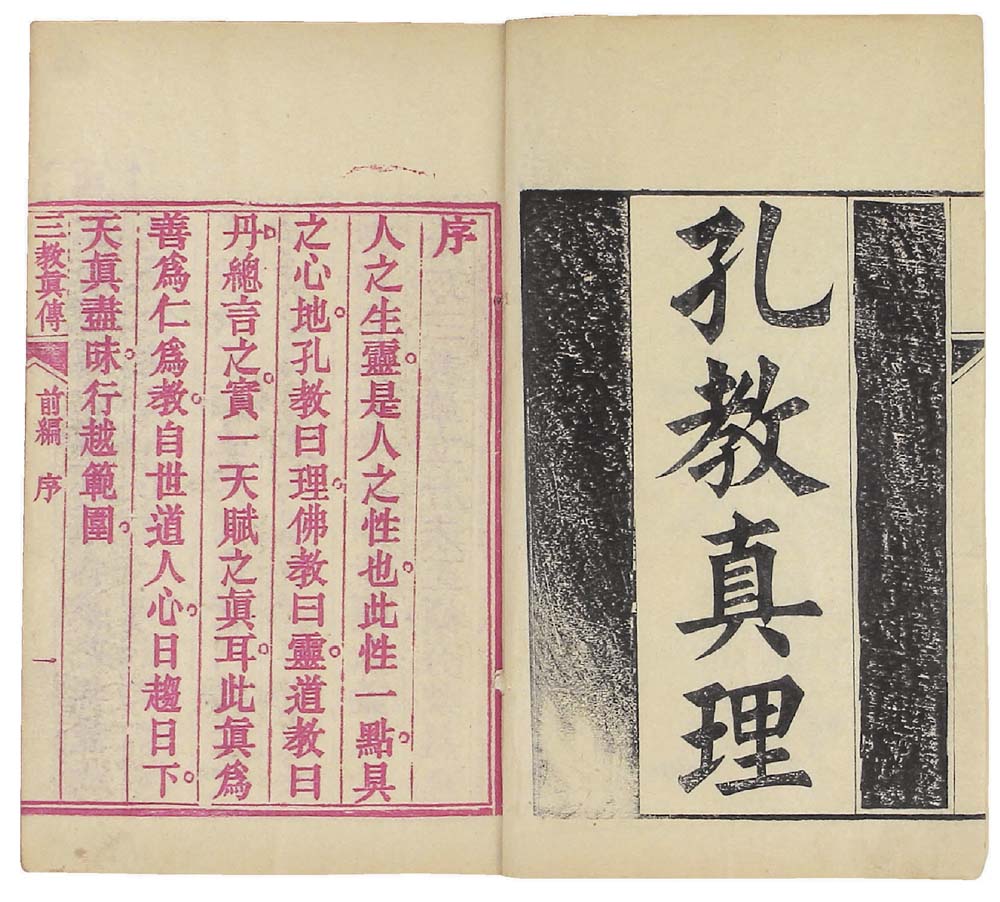 孔教真理
序
人之生靈。是人之性也。此性一點。具
之心地。孔教曰理。佛教曰靈。道教曰
丹。總言之。實一天賦之眞耳。此眞爲
善爲仁爲教。自世道人心。日趨日下。
天眞盡昧。行越範圍。
三教眞傳 前編 序 一